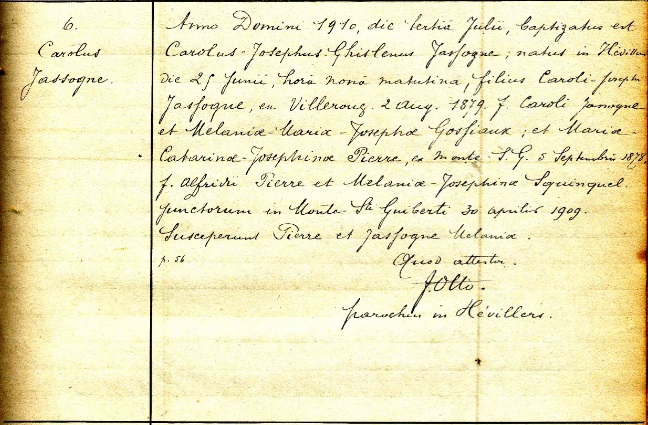 6.
Carolus
Jassogne.
Anno Domini 1910, die tertiâ Julii, baptizatus est
Carolus-Josephus-Ghislenus Jassogne; natus in Hévillers
die 25 Junii, horâ nonâ matutina, filius Caroli-Joseph
Jassogne, ex Villeroux 2 aug. 1879. f. Caroli Jassogne
et Melaniæ-Maria-Josephæ Gossiaux; et Mariæ-
Catarinæ-Josephinæ Pierre, ex monte S.G. 5 Septembris 1878.
f. Alfridii Pierre et Melaniæ-Josephinæ Soquinquel.
junctorum in Monte Sti Guiberti 30 aprilis 1909.
Susceperunt Pierre et Jassogne Melania.
p. 56
Quod attestor.
J. Otto.
parochus in Hévillers.